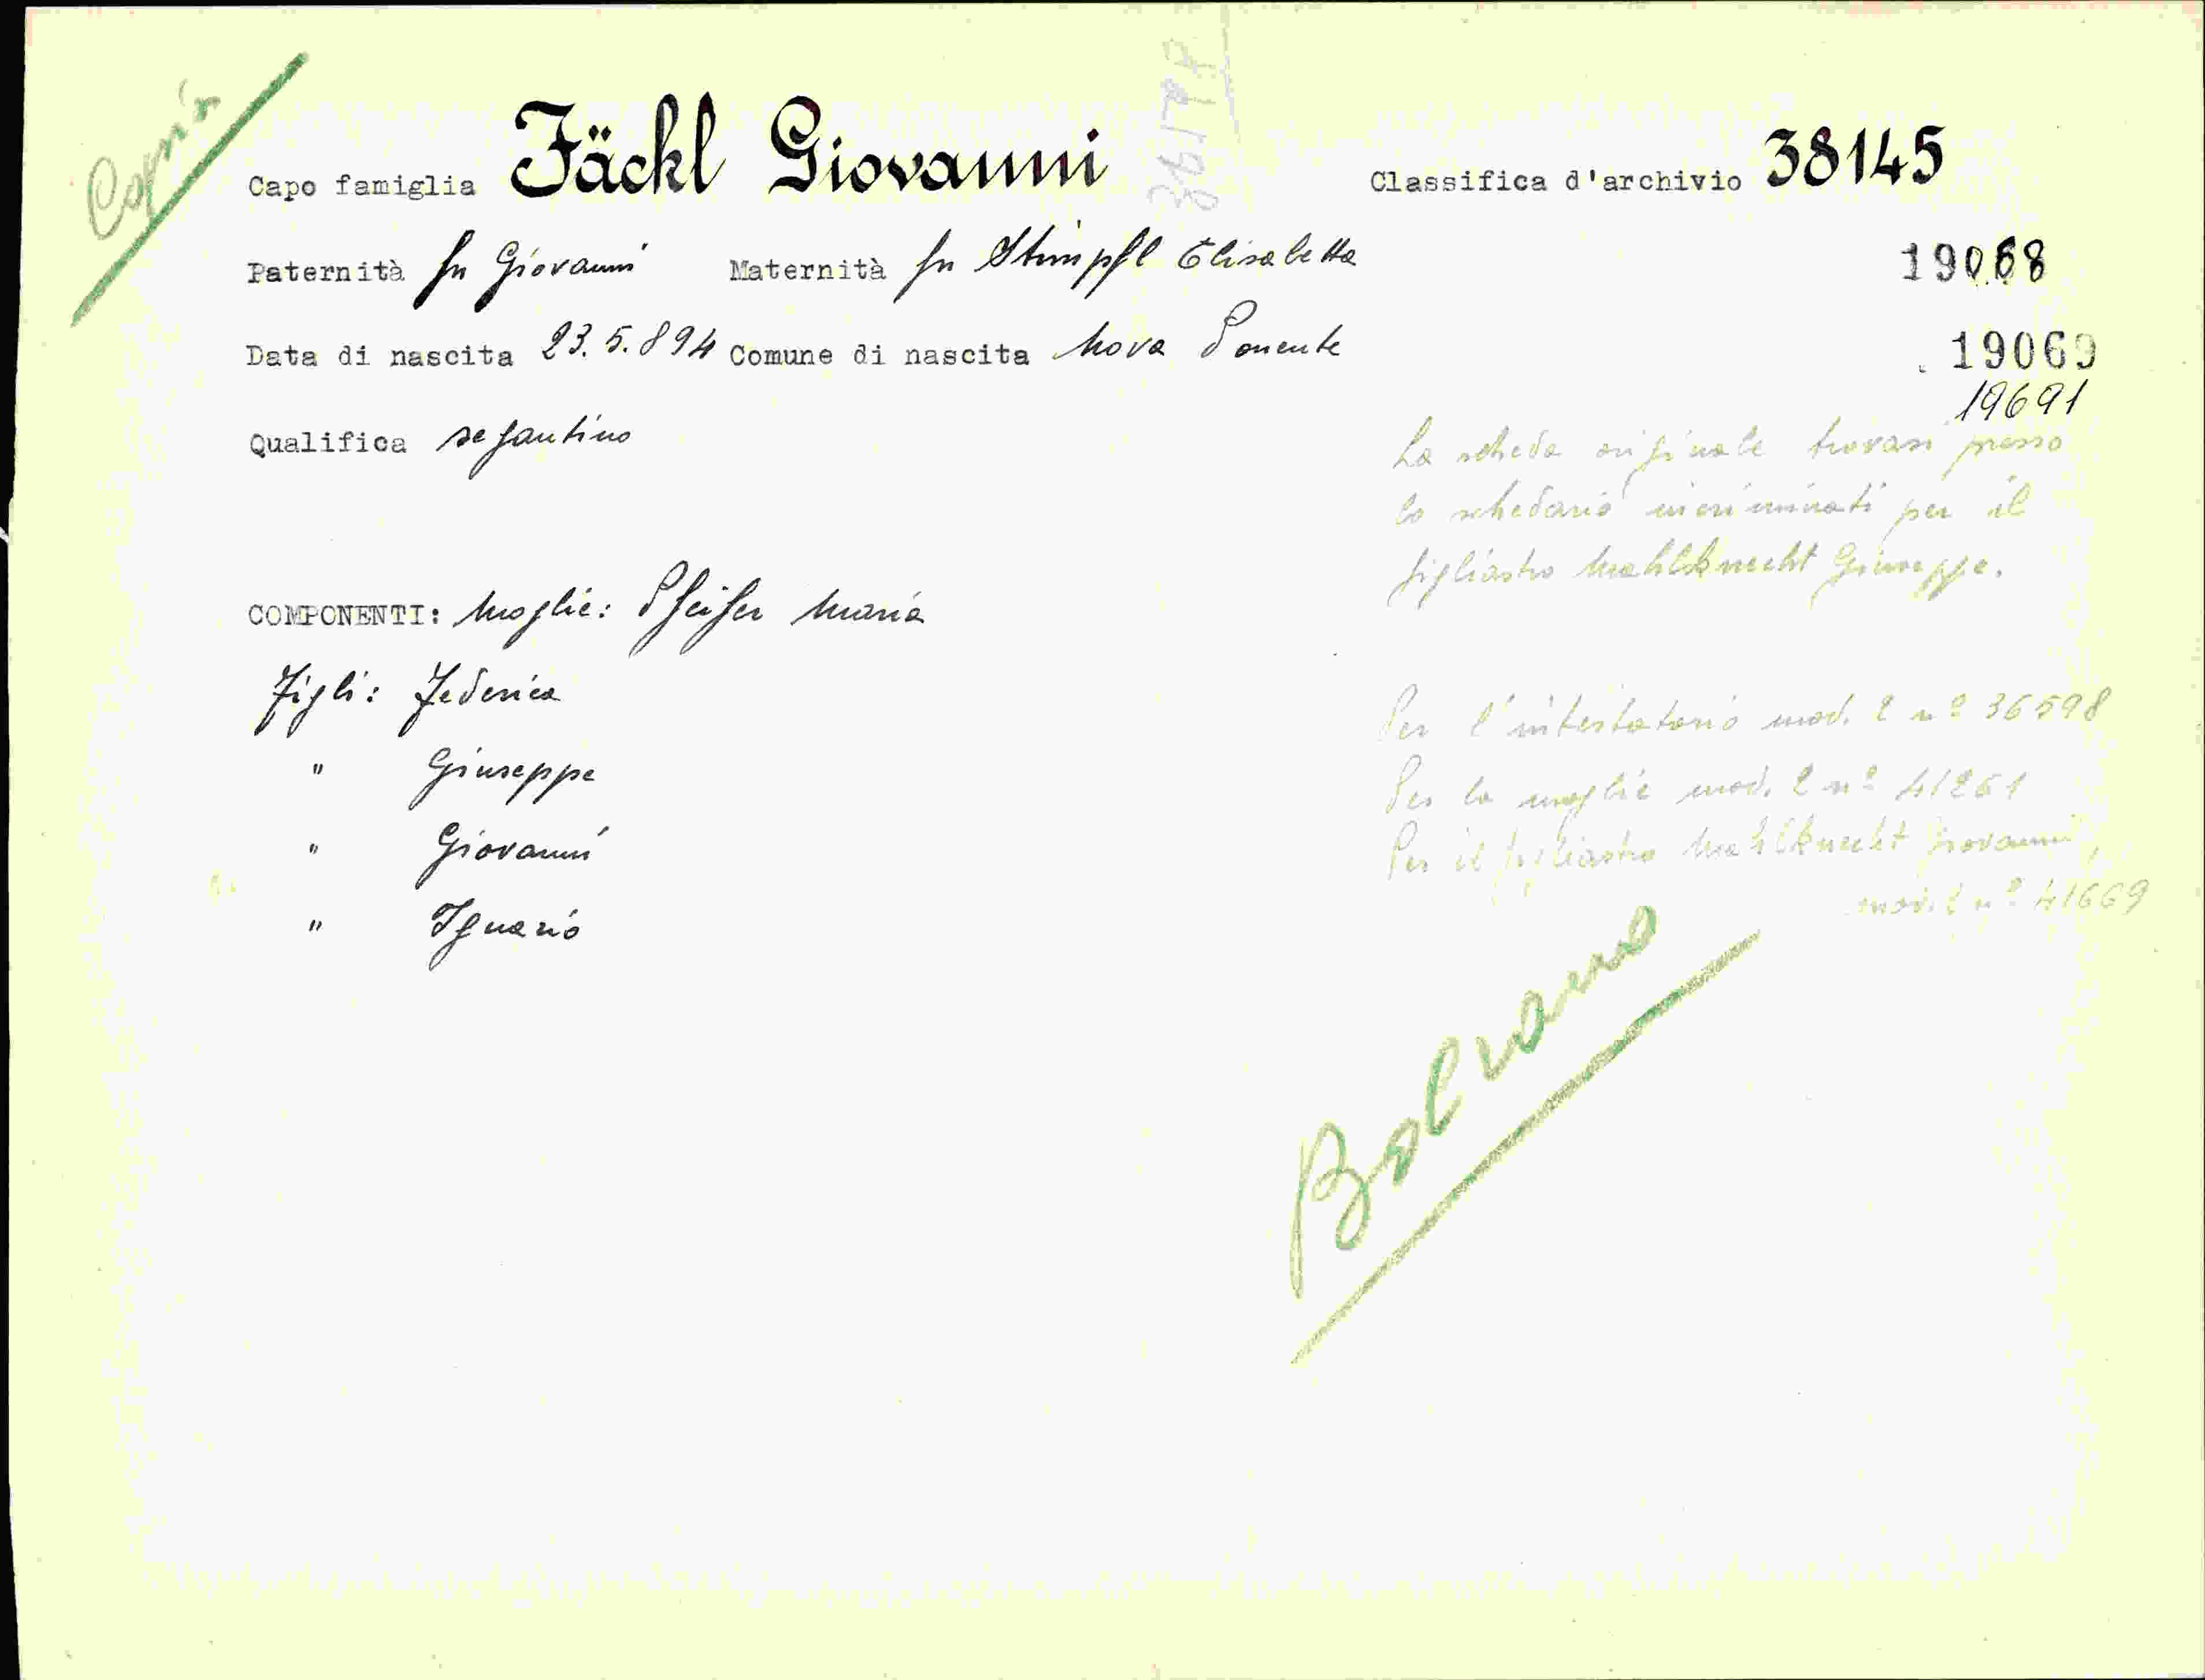 Copia
36178
Capo famiglia Jäckl Giovanni Classifica d'archivio 38145
Paternità fu Giovanni Maternità fu Stimpfl Elisabetta 19068
Data di nascita 23.5.894 Comune di nascita Nova Ponente 19069
19691
Qualifica segantino
La scheda originale trovasi presso
lo schedario incriminati per il
figliastro Mahlknecht Giuseppe.
COMPONENTI: Moglie: Pfeifer Maria
Figli: Federica
" Giuseppe
" Giovanni
" Ignazio
Per l'intestatario mod. 2 nº 36598
Per la moglie mod. 2 nº 41261
Per il figliastro Mahlknecht Giovanni,
mod. 2 nº 41669
Bolzano